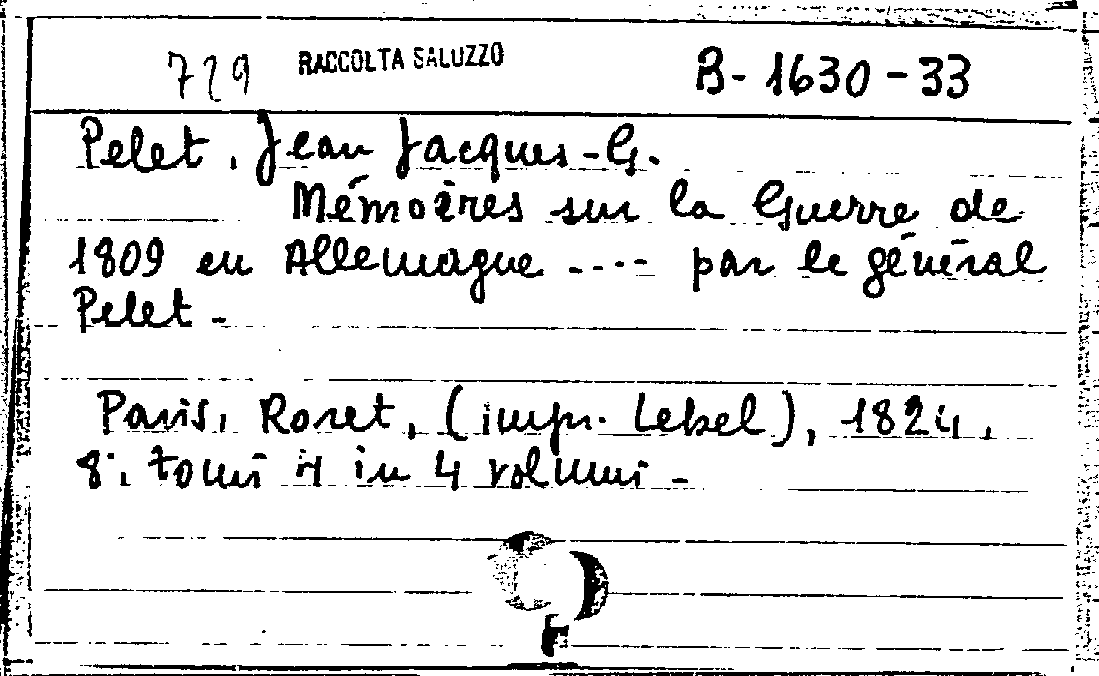 729 RACCOLTA SALUZZO B-1630-33
Pelet, Jean Jacques-G.
Mémoires sur la Guerre de
1809 en Allemagne .... par le général
Pelet -
Paris, Roret, (impr. Lebel), 1824,
8°. tomi 4 in 4 volumi -